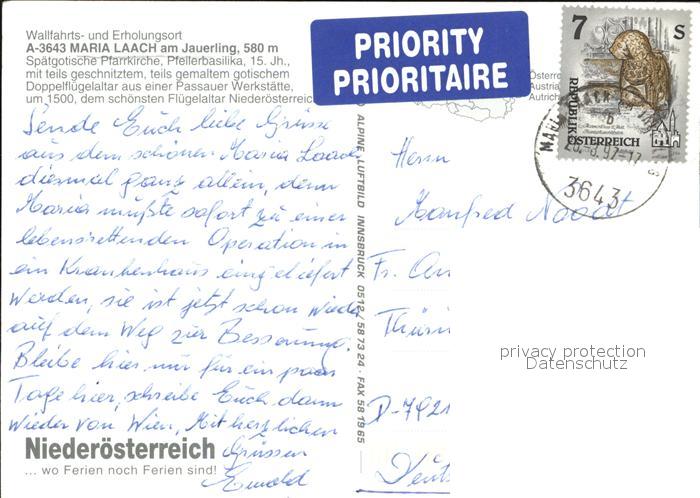 Wallfahrts- und Erholungsort
A-3643 MARIA LAACH am Jauerling, 580 m
Spätgotische Pfarrkirche, Pfeilerbasilika, 15. Jh.,
mit teils geschnitztem, teils gemaltem gotischem
Doppelflügelaltar aus einer Passauer Werkstätte,
um 1500, dem schönsten Flügelaltar Niederösterreic
PRIORITY
PRIORITAIRE
7 S
REPUBLIK
ÖSTERREICH
Österre
Austria
Autrich
3643
Sende Euch liebe Grüsse
aus dem schönen Maria Laach
diesmal ganz allein, denn
Maria mußte sofort zu einer
lebensrettenden Operation in
ein Krankenhaus eingeliefert
werden, sie ist jetzt schon wieder
auf dem Weg zur Besserung.
Bleibe hier nur für ein paar
Tage hier, schreibe Euch dann
wieder von Wien, Mit herzlichen
Grüssen
Ewald
Niederösterreich
... wo Ferien noch Ferien sind!
ALPINE LUFTBILD INNSBRUCK 0512/58 73 24 - FAX 58 19 65
Herrn
Manfred
Fr. An
Thüri
D-7921
Deuts
privacy protection
Datenschutz